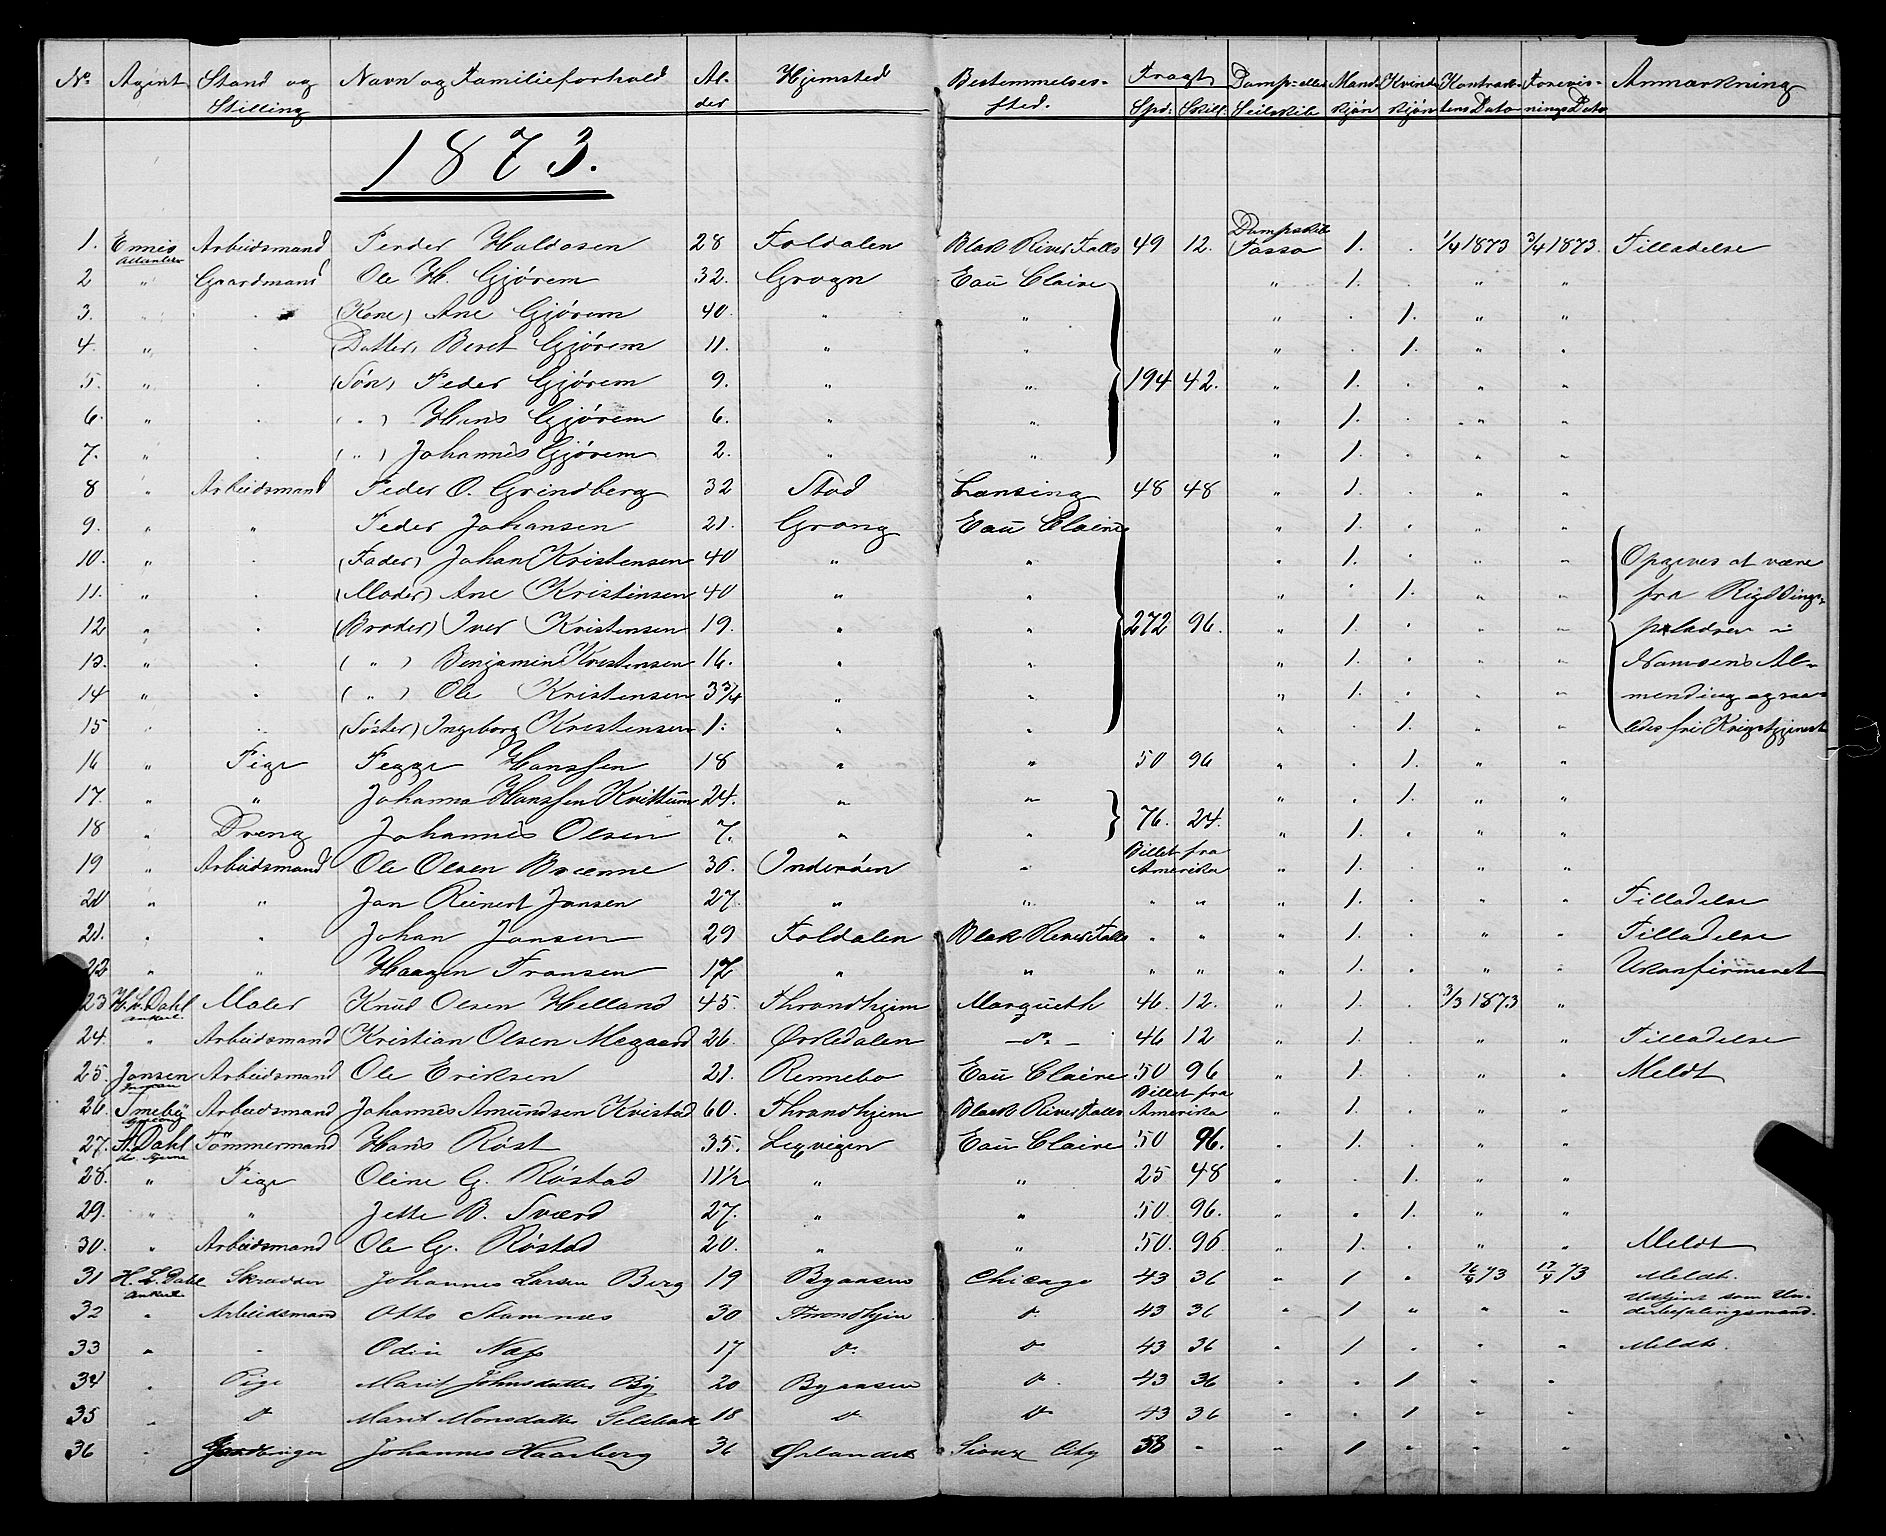 No. Agent Stand og Stilling Navn og Familieforhold Alder Hjemsted Bestemmelsessted. Fragt Spd. Skill. Damp- eller Seilskib Mandkjøn Kvindekjøn Kontraktens Dato Forevisnings Dato Anmærkning
1873.
1. Ennis Atlanteren Arbeidsmand Peder Haldosen 28 Foldalen Black River Falls 49 12. Dampskib Tasso 1. . 1/4 1873 3/4 1873. Tilladelse
2 " Gaardmand Ole H. Gjørem 32. Grogn Eau Claire " 1. . " "
3. " . (Kone) Ane Gjørem 40. " " " . 1. " "
4. " . (Datter) Beret Gjørem 11. " " " . 1. " "
5. " . (Søn) Peder Gjørem 9. " " 194 42. " 1. . " "
6. " . ( " ) Hans Gjørem 6. " " " 1. . " "
7. " . ( " ) Johannes Gjørem 2. " " " 1. . " "
8 " Arbeidsmand Peder O. Grindberg 32 Stod Lansing 48 48 " 1. . " "
9. " " Peder Johansen 21. Grong Eau Claire " 1. . " "
10. " . (Fader) Johan Kristensen 40 " " " 1. . " " Opgives at være
11. " . (Moder) Ane Kristensen 40 " " " . 1. " " fra
12 " . (Broder) Iver Kristensen 19. " " 272 96. " 1. . " " i
13. " . ( " ) Benjamin Kristensen 16. " " " 1. . " " Namsens Al-
14 " . ( " ) Ole Kristensen 3 3/4 " " " 1. . " " mending og saa-
15 " . (Søster) Ingeborg Kristensen 1. " " " . 1. " " ledes fri Krigstjenest
16 " Pige Pegge Hanssen 18 " " 50 96 " . 1. " "
17. " " Johanna Hanssen Kvittum 24. " " " . 1. " "
18 " Dreng Johannes Olsen 7. " " 76. 24. " 1. . " "
19 " Arbeidsmand Ole Olsen Brænne 36. Inderøen " Billet fra Amerika " 1. . " "
20 " " Jan Reinert Jansen 27. " " " " " 1. . " " Tilladelse
21. " " Johan Jansen 29 Foldalen Black River Falls " " " 1. . " " Tilladelse
22 " " Haagen Fransen 17 " " " " " 1. . " " Ukonfirmeret
23 H. L. Dahl Ankerl. Maler Knud Olsen Helland 45. Thrandhjem Marqueth 46. 12. " 1. . 3/3 1873 "
24. " Arbeidsmand Kristian Olsen Megaard 26. Ørkedalen - do - 46 12 " 1. . " " Tilladelse
25. Jansen Inman Arbeidsmand Ole Eriksen 21. Rennebo Eau Claire 50 96 " 1. . " " Meldt
26. Smeby Arbeidsmand Johannes Amundsen Kvistad 60. Thrandhjem Black River Falls Billet fra Amerika " 1. . " "
27. A. Dahl Tømmermand Hans Røst 35. Lexvigen Eau Claire 50 96. " 1. . " "
28. " Pige Oline G. Røstad 11 1/2 " " 25 48 " . 1. " "
29. " " Jette B. Sværd 27. " " 50. 96. " " 1. " "
30. " Arbeidsmand Ole G. Røstad 20. " " 50. 96. " 1. . " " Meldt
31 H. L. Dahl Ankerl. Skrædder Johannes Larsen Berg 19 Byaasen Chicago 43 36 " 1 " 16/4 73 17/4 73 Meldt.
32 " Arbeidsmand Otto Stamnæs 30 Trondhjem do 43 36 " 1 " " " Udtjent som Un-
derbefalingsmand.
33 " " Odin Næss 17 do do 43 36 " 1 " " " Meldt.
34 " Pige Marit Johnsdatter By 20 Byaasen do 43 36 " " 1 " "
35 " do Marit Monsdatter 18 do do 43 36 " " 1 " "
36 " Johannes Haarberg 36 Ørlandet Sioux City 53 " " 1 " " "